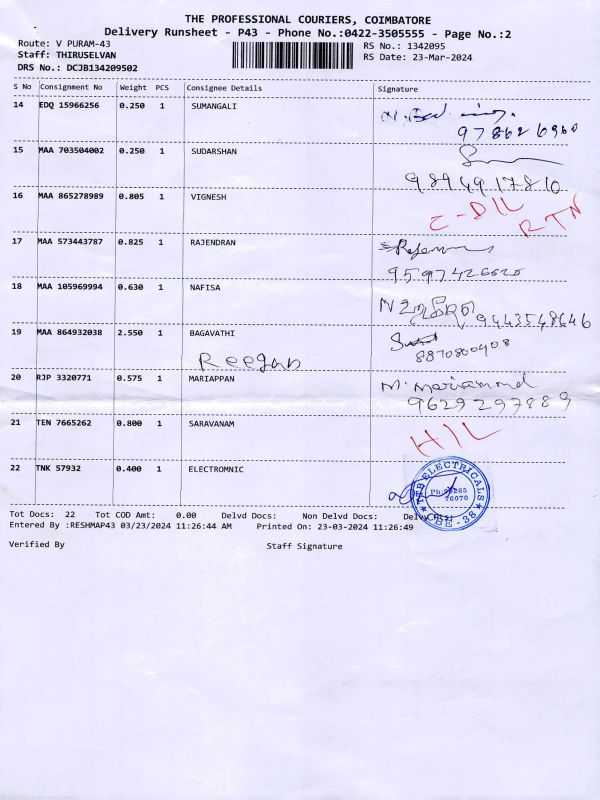 THE PROFESSIONAL COURIERS, COIMBATORE
Delivery Runsheet - P43 - Phone No.:0422-3505555 - Page No.:2
Route: V PURAM-43 RS No.: 1342095
Staff: THIRUSELVAN RS Date: 23-Mar-2024
DRS No.: DCJB134209502
S No Consignment No Weight PCS Consignee Details Signature
14 EDQ 15966256 0.250 1 SUMANGALI
15 MAA 703504002 0.250 1 SUDARSHAN
9894917810
16 MAA 865278989 0.805 1 VIGNESH
RTN
17 MAA 573443787 0.825 1 RAJENDRAN
18 MAA 105969994 0.630 1 NAFISA
9443548646
19 MAA 864932038 2.550 1 BAGAVATHI
8870800408
Reegan
20 RJP 3320771 0.575 1 MARIAPPAN
9629297889
21 TEN 7665262 0.800 1 SARAVANAM
22 TNK 57932 0.400 1 ELECTROMNIC
ELECTRICALS
CBE - 38
Tot Docs: 22 Tot COD Amt: 0.00 Delvd Docs: Non Delvd Docs:
Entered By :RESHMAP43 03/23/2024 11:26:44 AM Printed On: 23-03-2024 11:26:49
Verified By Staff Signature